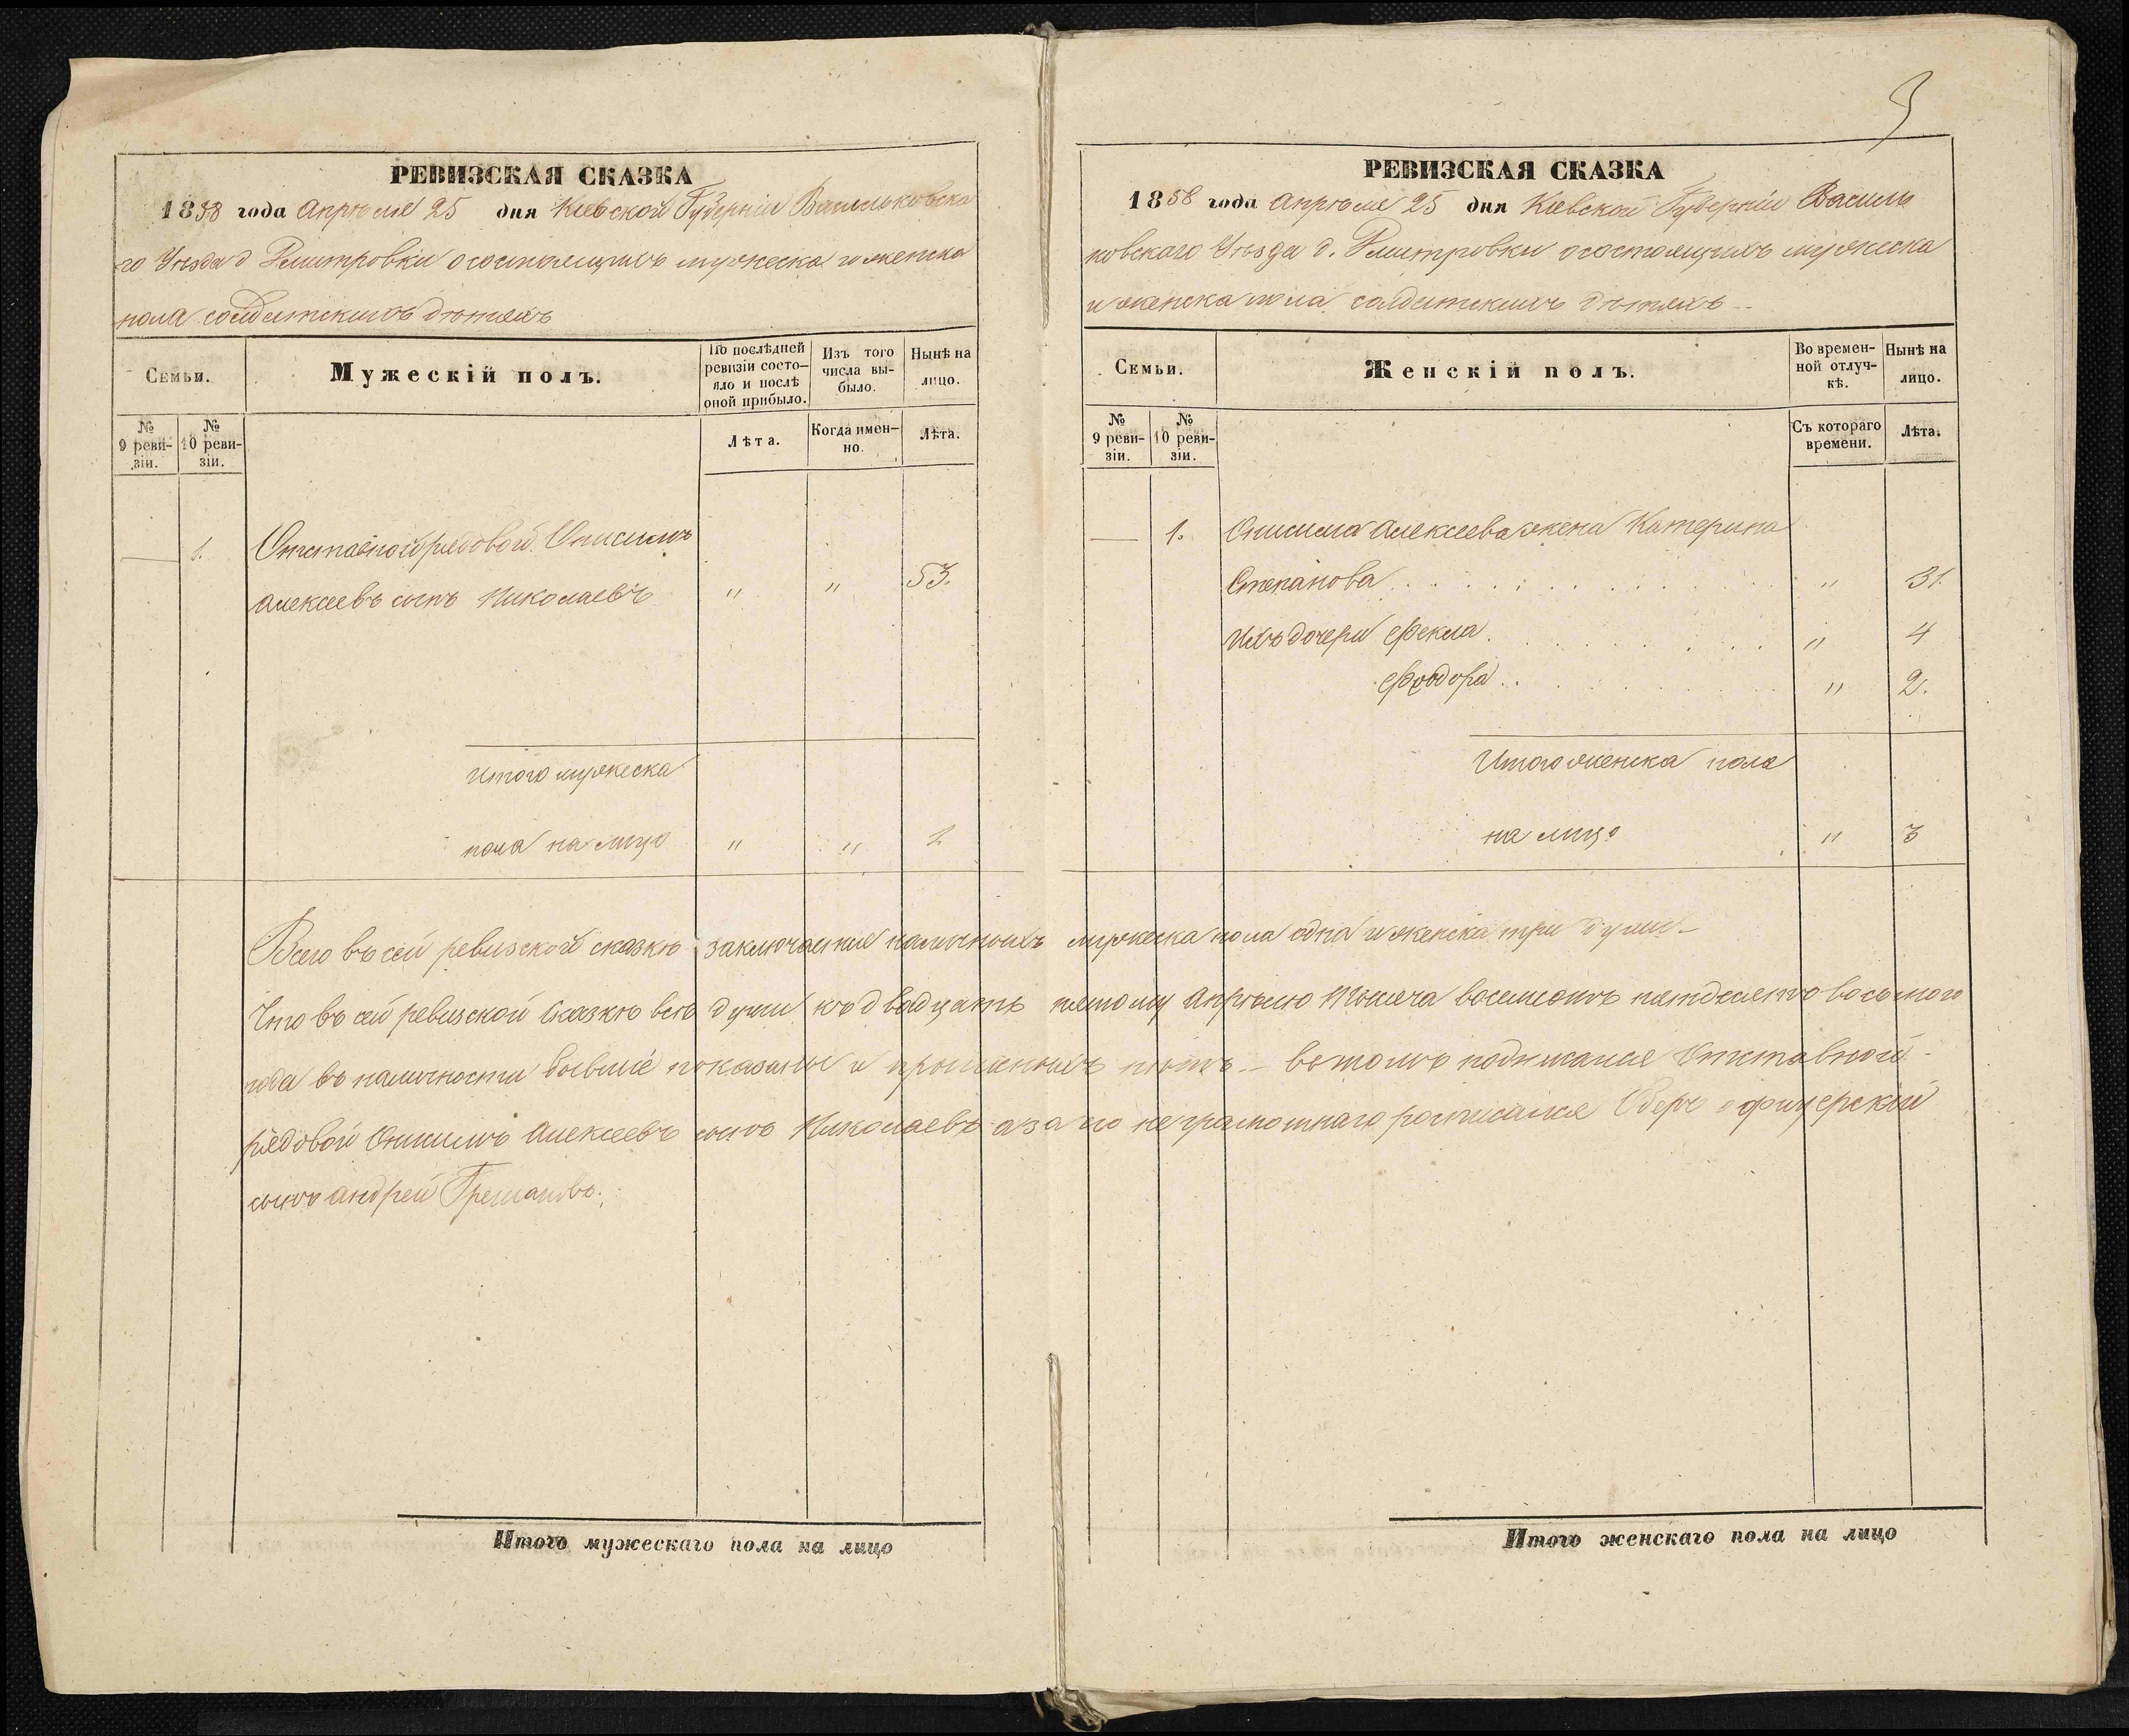 3
РЕВИЗСКАЯ СКАЗКА
1858 года Апрѣля 25 дня Кіевской Губерніи Васильковска
го Уѣзда д Дмитровки о состоящихъ мужеска и женска
пола солдатскихъ дѣтяхъ
Семьи.
Мужескій полъ.
По послѣдней ревизіи состо-
яло и послѣ оной прибыло.
Изъ того числа вы-
было.
Нынѣ на лицо.
№ 9 реви-
зіи.
№ 10 реви-
зіи.
Лѣта.
Когда имен-
но.
Лѣта.
— 1. Отставной рядовой Онисимъ
Алексеевъ сынъ Николаевъ " " 53.
Итого мужеска
пола на лицо " " 1
РЕВИЗСКАЯ СКАЗКА
1858 года Апрѣля 25 дня Кіевской Губерніи Василь
ковскаго Уѣзда д. Дмитровки о состоящихъ мужеска
и женска пола солдатскихъ дѣтяхъ
Семьи.
Женскій полъ.
Во времен-
ной отлуч-
кѣ.
Нынѣ на лицо.
№ 9 реви-
зіи.
№ 10 реви-
зіи.
Съ котораго времени.
Лѣта.
— 1. Онисима Алексеева жена Катерина
Степанова " 31.
Ихъ дочери Фекла " 4
Фѳодора " 2.
Итого женска пола
на лицо " 3
Всего въ сей ревизской сказкѣ заключается наличныхъ мужеска пола одна и женска три души
Что въ сей ревизской сказкѣ всѣ души къ двадцать пятому Апрѣлю Мѣсяца восемсотъ пятдесято восьмого
года въ наличности бывшіе показаны и нѣтъ вътомъ подписался Отставной
рядовой Онисимъ Алексеевъ сынъ Николаевъ а за него неграмотнаго росписался Оберъ офицерскій
сынъ Андрей
Итого мужескаго пола на лицо
Итого женскаго пола на лицо